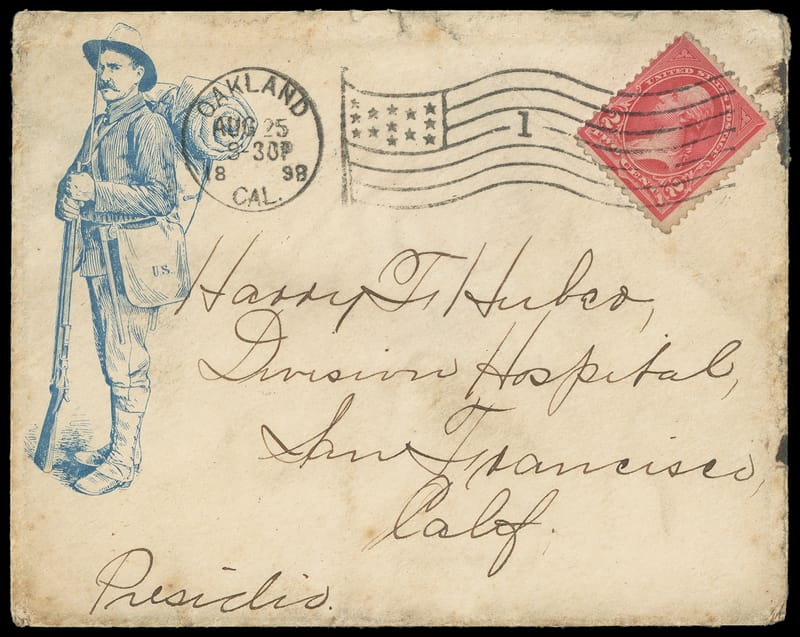 OAKLAND
AUG 25
8-30P
18 98
CAL.
1
UNITED STATES POSTAGE
TWO CENTS
2
2
U.S.
Harry F. Huber,
Division Hospital,
San Francisco,
Calif.
Presidio.